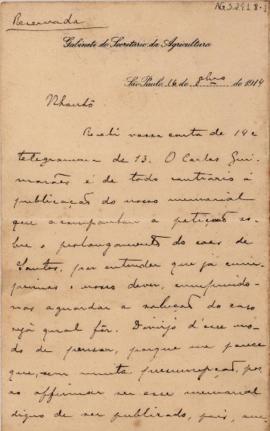 Reservada
Gabinete do Secretario da Agricultura
São Paulo, 16 de 8bro de 1914
Nhonhô
Recebi vossa carta de 14 e
telegramma de 13. O Carlos Gui-
marães é de todo contrario á
publicação do nosso memorial
que acompanhar a petição so-
bre o prolongamento do caes de
Santos, por entender que já cum-
primos o nosso dever, cumprindo-
nos aguardar a solução do caso
seja qual fôr. Divirjo d'esse mo-
do de pensar, porque me parece
que, sem muita presumpção, pos-
so affirmar ser esse memorial
digno de ser publicado, pois, que